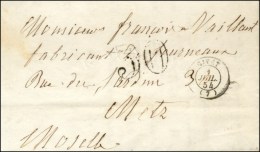 Monsieur françois Vaillant
fabricant de fourneaux
Rue du
Metz
Moselle
GIVET
54
(7)